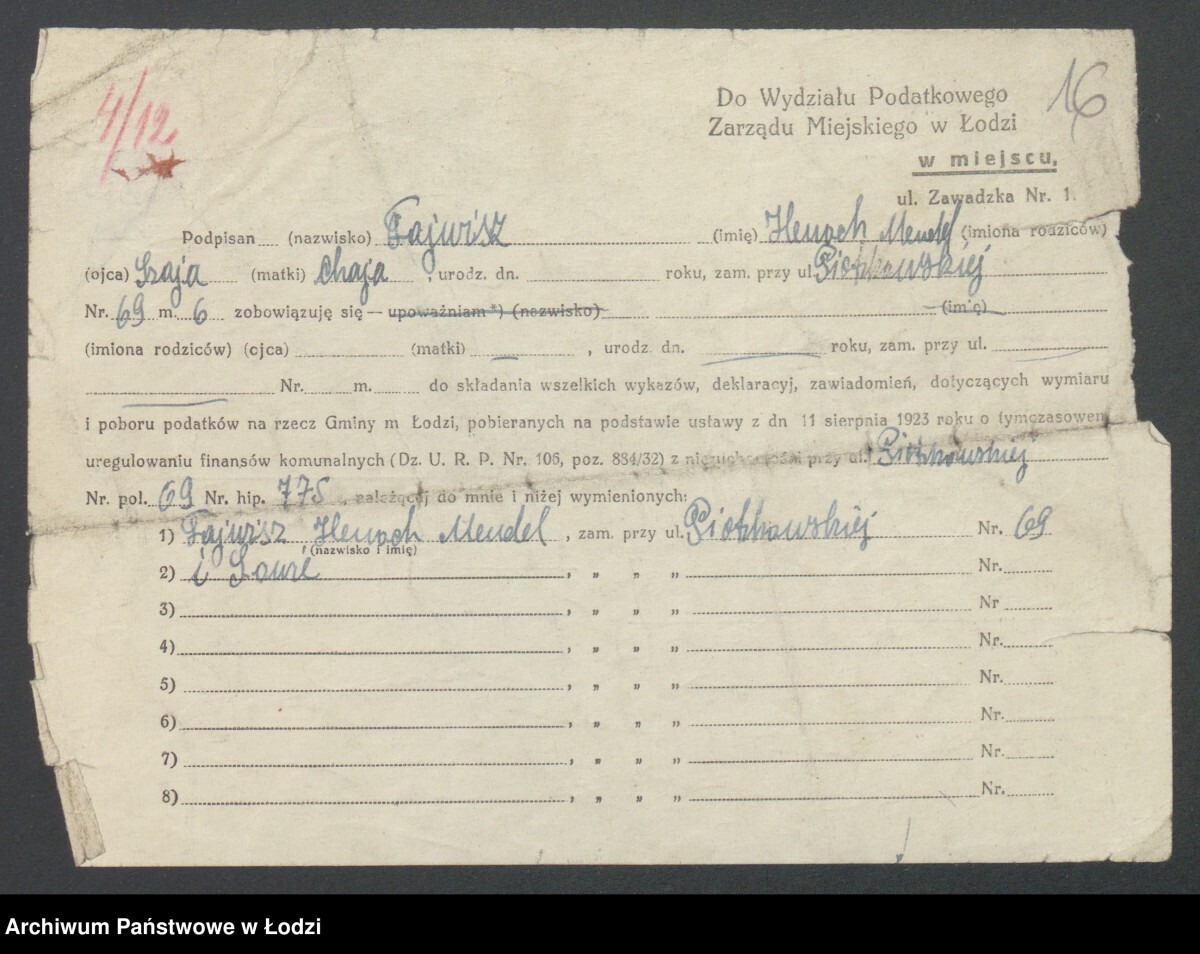 4/12
16
Do Wydziału Podatkowego
Zarządu Miejskiego w Łodzi
w miejscu,
ul. Zawadzka Nr. 1.
Podpisan (nazwisko) Fajwisz (imię) Henoch Mendel (imiona rodziców)
(ojca) Szaja (matki) Chaja, urodz. dn. roku, zam. przy ul. Piotrkowskiej
Nr. 69 m. 6 zobowiązuję się — upoważniam*) (nazwisko) (imię)
(imiona rodziców) (ojca) (matki) , urodz. dn. roku, zam. przy ul.
Nr. m. do składania wszelkich wykazów, deklaracyj, zawiadomień, dotyczących wymiaru
i poboru podatków na rzecz Gminy m Łodzi, pobieranych na podstawie ustawy z dn 11 sierpnia 1923 roku o tymczasowem
uregulowaniu finansów komunalnych (Dz. U. R. P. Nr. 106, poz. 884/32) z nieruchomości przy ul. Piotrkowskiej
Nr. pol. 69 Nr. hip. 775, należącej do mnie i niżej wymienionych:
1) Fajwisz Henoch Mendel , zam. przy ul. Piotrkowskiej Nr. 69
(nazwisko i imię)
2) i , „ „ „ Nr.
3) , „ „ „ Nr
4) , „ „ „ Nr.
5) , „ „ „ Nr.
6) , „ „ „ Nr.
7) , „ „ „ Nr.
8) , „ „ „ Nr.
Archiwum Państwowe w Łodzi